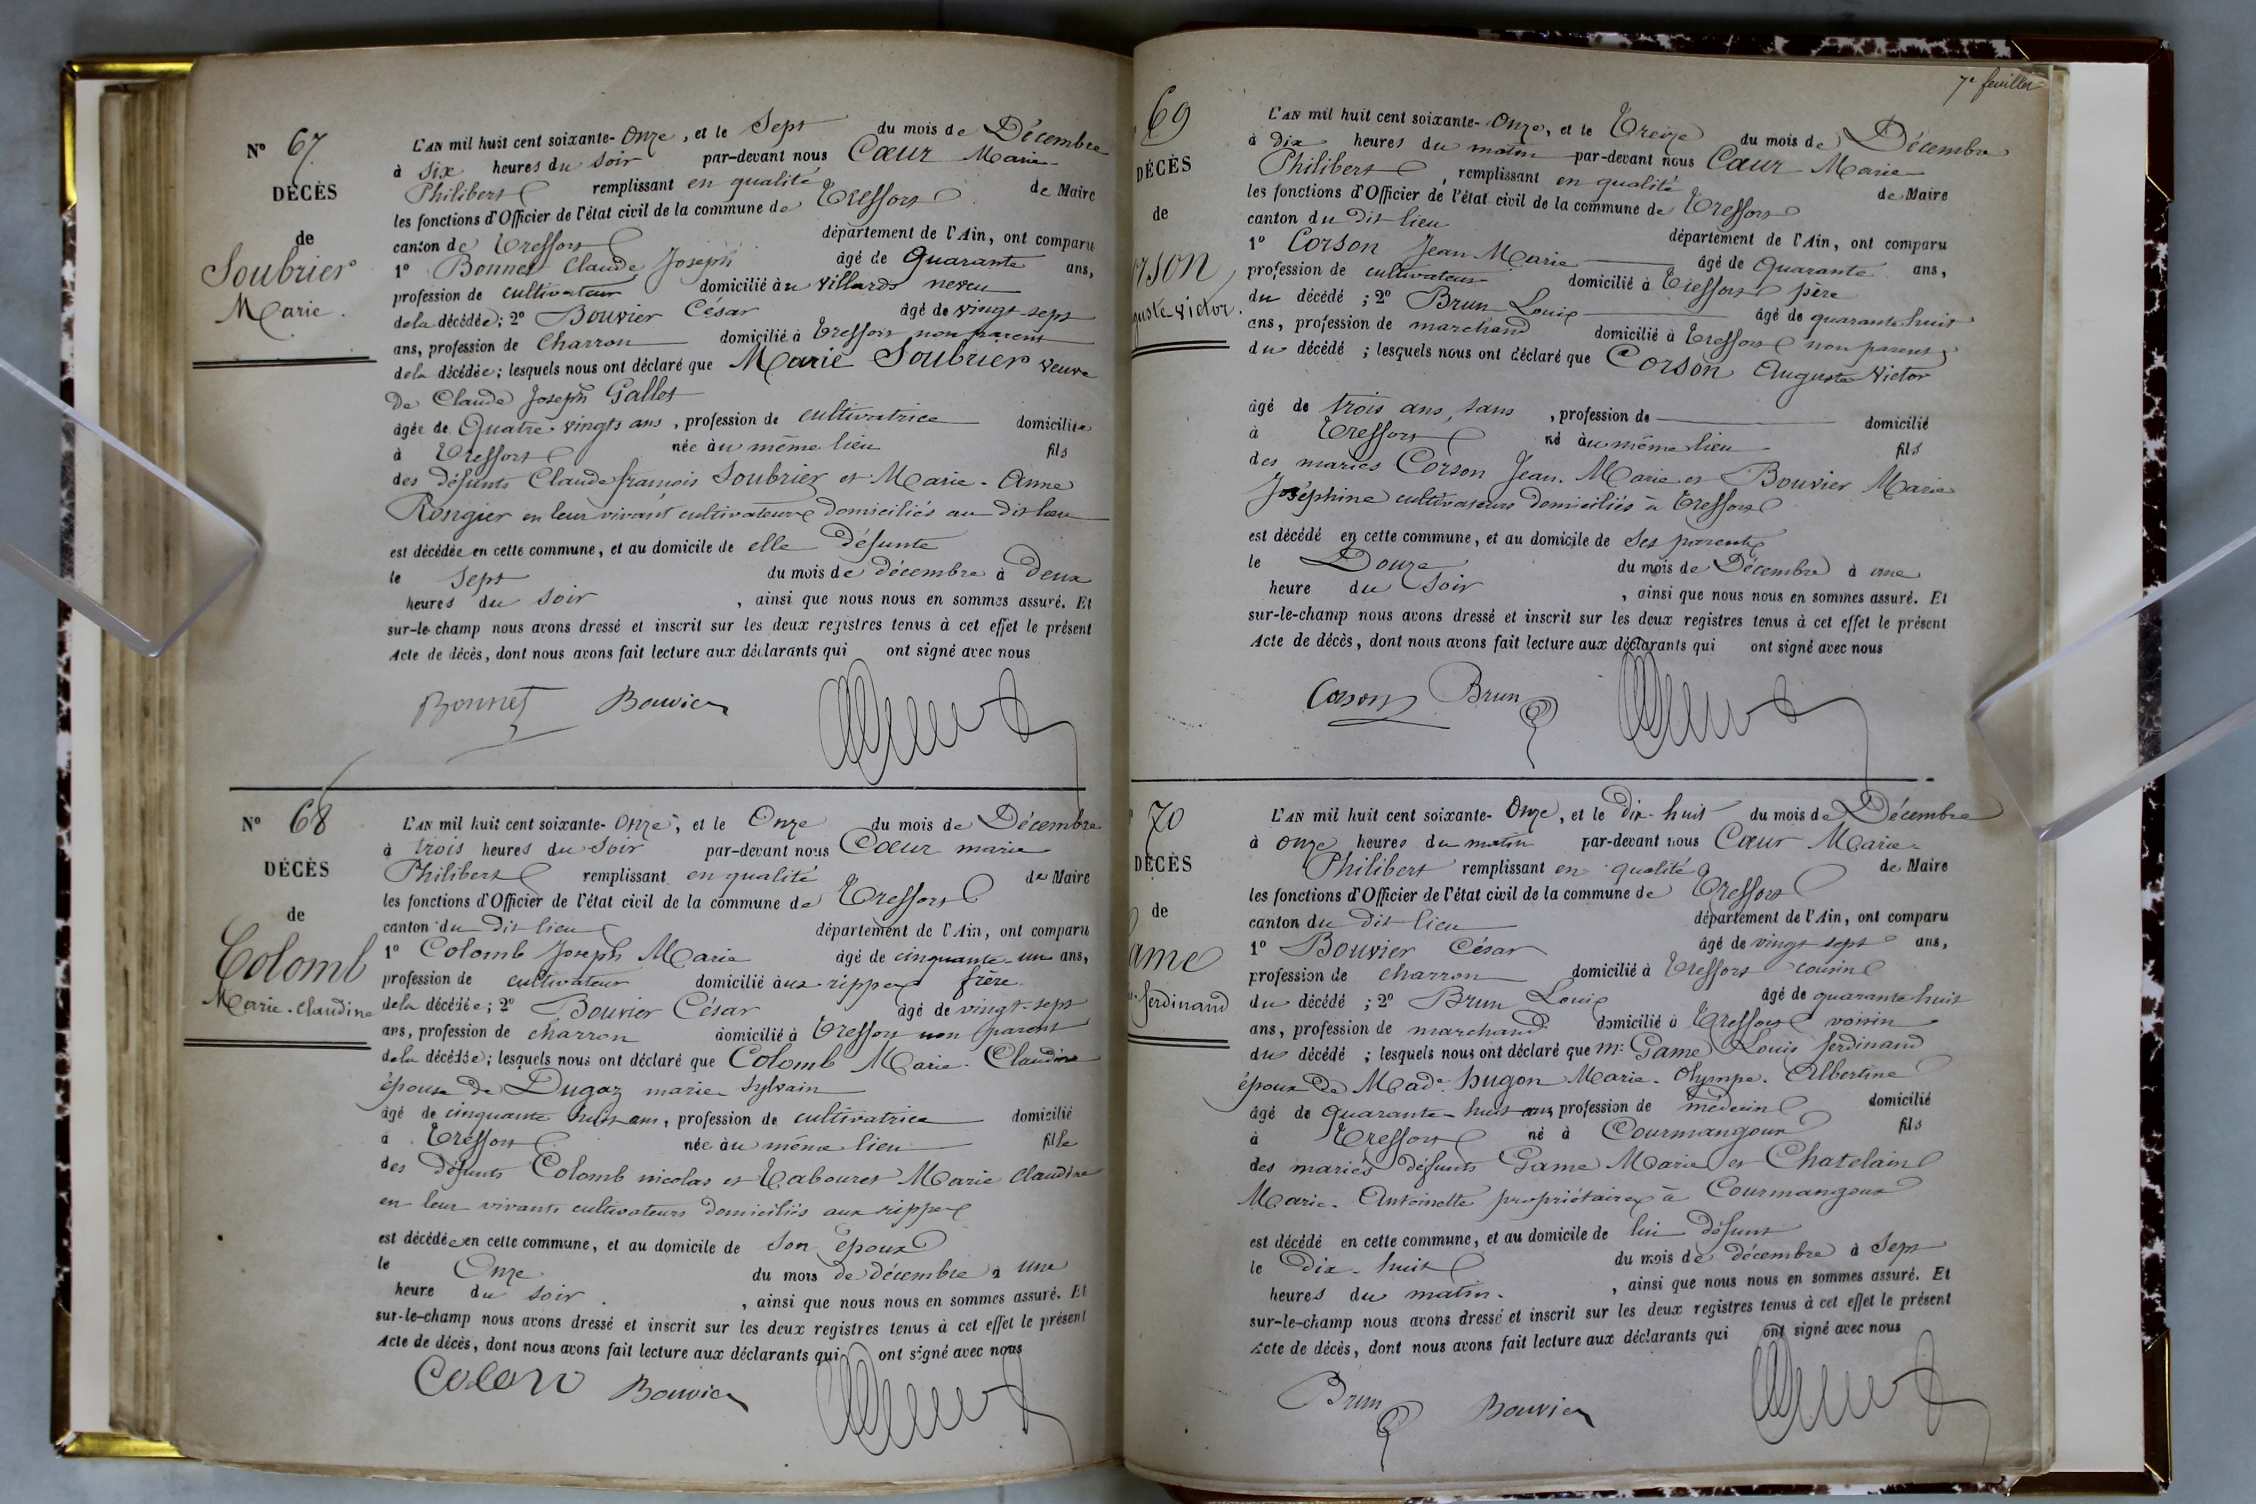 N° 67
DÉCÈS
de
Soubrier
Marie.
L'AN mil huit cent soixante-Onze, et le Sept du mois de Décembre
à six heures du soir par-devant nous Cœur Marie
Philibert remplissant en qualité de Maire
les fonctions d'Officier de l'état civil de la commune de Treffort
canton de Treffort département de l'Ain, ont comparu
1° Bonnet Claude Joseph âgé de Quarante ans,
profession de cultivateur domicilié au villards neveu
de la décédée; 2° Bouvier César âgé de vingt-sept
ans, profession de Charron domicilié à Treffort non parent
de la décédée; lesquels nous ont déclaré que Marie Soubrier veuve
de Claude Joseph Gallet
âgée de Quatre-vingts ans, profession de cultivatrice domiciliée
à Treffort née au même lieu fils
des défunts Claude françois Soubrier et Marie-Anne
Rongier en leur vivant cultivateurs domiciliés au dit lieu
est décédée en cette commune, et au domicile de elle défunte
le Sept du mois de décembre à Deux
heures du soir, ainsi que nous nous en sommes assuré. Et
sur-le-champ nous avons dressé et inscrit sur les deux registres tenus à cet effet le présent
Acte de décès, dont nous avons fait lecture aux déclarants qui ont signé avec nous
Bonnet Bouvier
N° 68
DÉCÈS
de
Colomb
Marie-Claudine
L'AN mil huit cent soixante-Onze, et le Onze du mois de Décembre
à trois heures du soir par-devant nous Cœur marie
Philibert remplissant en qualité de Maire
les fonctions d'Officier de l'état civil de la commune de Treffort
canton du dit lieu département de l'Ain, ont comparu
1° Colomb Joseph Marie âgé de cinquante-un ans,
profession de cultivateur domicilié aux rippes frère
de la décédée; 2° Bouvier César âgé de vingt-sept
ans, profession de charron domicilié à Treffort non parent
de la décédée; lesquels nous ont déclaré que Colomb Marie-Claudine
épouse de Dugaz marie Sylvain
âgé de cinquante huit ans, profession de cultivatrice domicilié
à Treffort née au même lieu fille
des défunts Colomb nicolas et Tabouret Marie Claudine
en leur vivants cultivateurs domiciliés aux rippes
est décédée en cette commune, et au domicile de son époux
le Onze du mois de décembre à une
heure du soir, ainsi que nous nous en sommes assuré. Et
sur-le-champ nous avons dressé et inscrit sur les deux registres tenus à cet effet le présent
Acte de décès, dont nous avons fait lecture aux déclarants qui ont signé avec nous
Bouvier
7e feuillet
69
DÉCÈS
de
orson
guste victor.
L'AN mil huit cent soixante-Onze, et le Treize du mois de Décembre
à dix heures du matin par-devant nous Cœur Marie
Philibert, remplissant en qualité de Maire
les fonctions d'Officier de l'état civil de la commune de Treffort
canton du dit lieu département de l'Ain, ont comparu
1° Corson Jean Marie âgé de Quarante ans,
profession de cultivateur domicilié à Treffort père
du décédé; 2° Brun Louis âgé de quarante huit
ans, profession de marchand domicilié à Treffort non parents
du décédé; lesquels nous ont déclaré que Corson Auguste Victor
âgé de trois ans, sans, profession de domicilié
à Treffort né au même lieu fils
des mariés Corson Jean-Marie et Bouvier Marie
Joséphine cultivateurs domiciliés à Treffort
est décédé en cette commune, et au domicile de ses parents
le Douze du mois de Décembre à une
heure du soir, ainsi que nous nous en sommes assuré. Et
sur-le-champ nous avons dressé et inscrit sur les deux registres tenus à cet effet le présent
Acte de décès, dont nous avons fait lecture aux déclarants qui ont signé avec nous
Corson Brun
70
DÉCÈS
de
ame
ferdinand
L'AN mil huit cent soixante-Onze, et le Dix-huit du mois de Décembre
à onze heures du matin par-devant nous Cœur Marie
Philibert remplissant en qualité de Maire
les fonctions d'Officier de l'état civil de la commune de Treffort
canton du dit lieu département de l'Ain, ont comparu
1° Bouvier César âgé de vingt sept ans,
profession de charron domicilié à Treffort cousin
du décédé; 2° Brun Louis âgé de quarante huit
ans, profession de marchand domicilié à Treffort voisin
du décédé; lesquels nous ont déclaré que Mr Game Louis ferdinand
époux de Made hugon Marie-Olympe-Albertine
âgé de quarante-huit ans profession de médecin domicilié
à Treffort né à Courmangoux fils
des mariés défunts Game Marie et Chatelain
Marie-Antoinette propriétaires à Courmangoux
est décédé en cette commune, et au domicile de lui défunt
le Dix-huit du mois de décembre à Sept
heures du matin, ainsi que nous nous en sommes assuré. Et
sur-le-champ nous avons dressé et inscrit sur les deux registres tenus à cet effet le présent
Acte de décès, dont nous avons fait lecture aux déclarants qui ont signé avec nous
Brun Bouvier